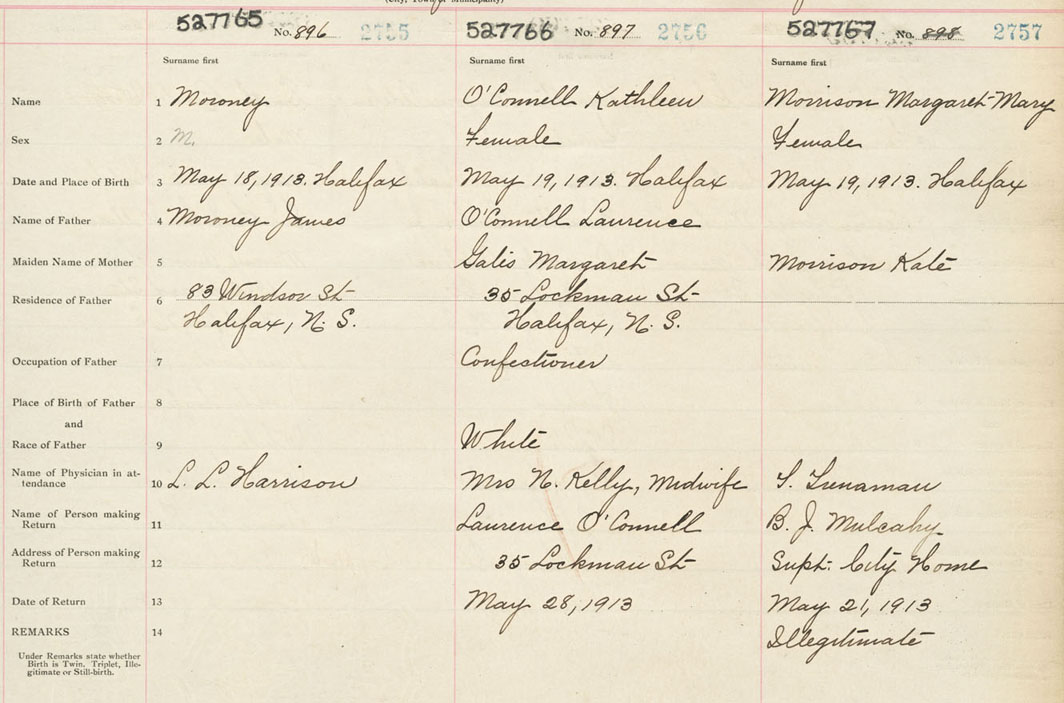 (City, Town or Municipality)
527765 No. 896 2755 527766 No. 897 2756 527767 No. 898 2757
Surname first Surname first Surname first
Name 1 Moroney O'Connell Kathleen Morrison Margaret Mary
Sex 2 M. Female Female
Date and Place of Birth 3 May 18, 1913. Halifax May 19, 1913. Halifax May 19, 1913. Halifax
Name of Father 4 Moroney James O'Connell Laurence
Maiden Name of Mother 5 Margaret Morrison Kate
Residence of Father 6 83 Windsor St 35 Lockman St
Halifax, N. S. Halifax, N. S.
Occupation of Father 7 Confectioner
Place of Birth of Father 8
and
Race of Father 9 White
Name of Physician in at-
tendance 10 L. L. Harrison Mrs N. Kelly, Midwife Trenaman
Name of Person making
Return 11 Laurence O'Connell B. J. Mulcahy
Address of Person making
Return 12 35 Lockman St Supt. City Home
Date of Return 13 May 28, 1913 May 21, 1913
REMARKS 14 Illegitimate
Under Remarks state whether
Birth is Twin, Triplet, Ille-
gitimate or Still-birth.